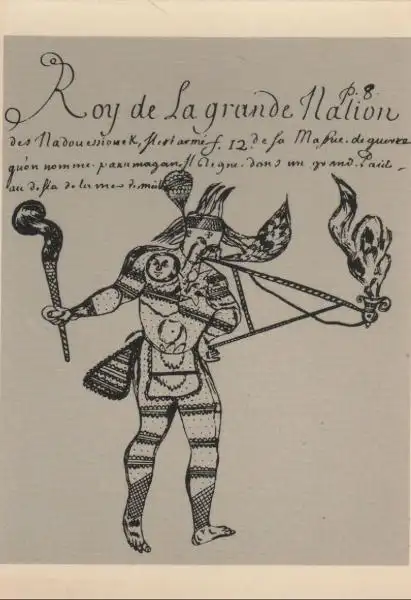 p. 8.
Roy de La grande Nation
des Nadouessiouek, Il est armé f. 12 de sa Massue de guerre
quon nomme pakamagan Il Regne dans un grand Païs
au dela de la mer